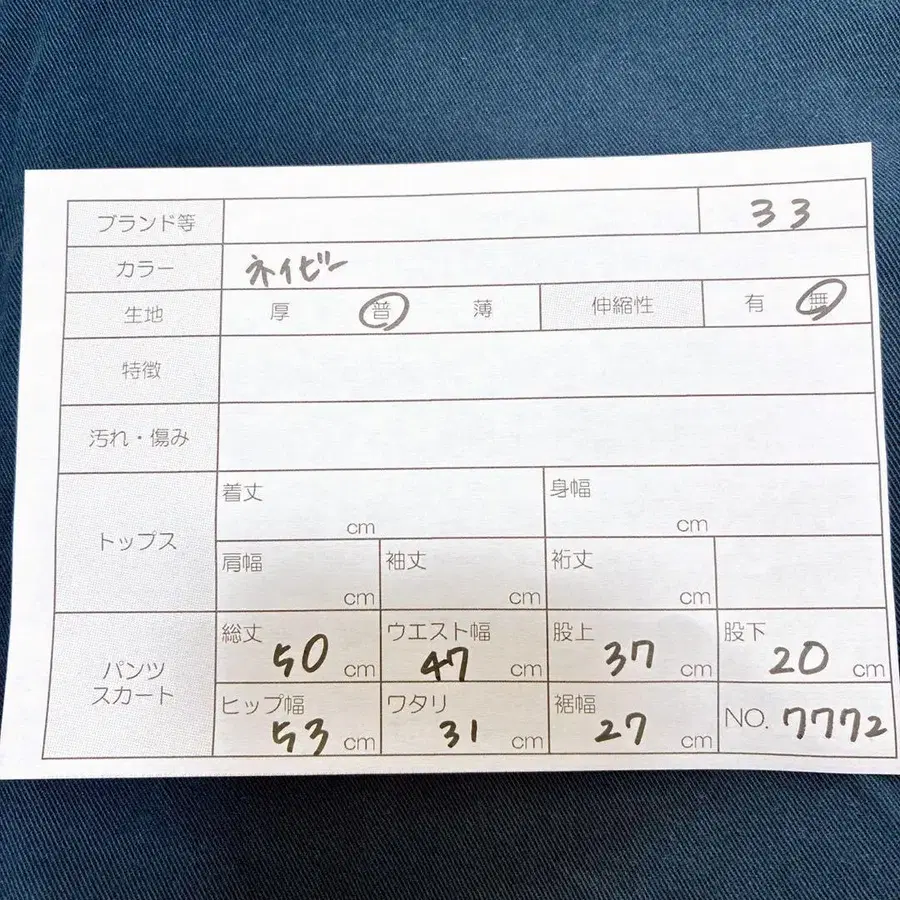 ブランド等 33
カラー ネイビー
生地 厚 普 薄 伸縮性 有 無
特徴
汚れ・傷み
トップス
着丈 cm 身幅 cm
肩幅 cm 袖丈 cm 裄丈 cm
パンツ
スカート
総丈 50 cm ウエスト幅 47 cm 股上 37 cm 股下 20 cm
ヒップ幅 53 cm ワタリ 31 cm 裾幅 27 cm NO. 7772